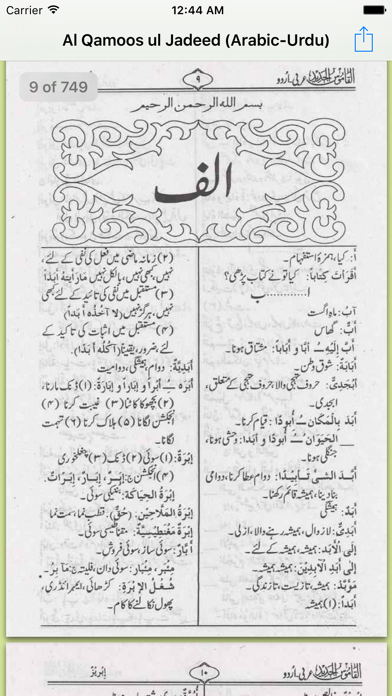 Carrier 12:44 AM
Al Qamoos ul Jadeed (Arabic-Urdu)
9 of 749
القاموس الجدید عربی-اُردو
۹
بسم الله الرحمن الرحیم
الف
أ: کیا، ہمزۂ استفہام۔
أَقَرَأتَ كِتَاباً: کیا تو نے کتاب پڑھی؟
ا............ب
آبُ: ماہِ اگست
أَبٌّ: گھاس
أَبَّ إلَيْهِ ـُ أَبًّا و أَبَاباً: مشتاق ہونا۔
أَبَابَةٌ: شوق وطن۔
أَبْجَدِيٌّ: حروف تہجی والا، حروف تہجی کے متعلق،
ابجدی۔
أَبَدَ بِالْمَكَانِ ـُ أُبُودًا: قیام کرنا۔
ـــ الحَيَوَانُ ـُ أُبُودًا و أبدا: وحشی ہونا،
جنگلی ہونا۔
أَبَّدَ الشئَ تَأْبِيدًا: دوام عطا کرنا، دوامی
بنا دینا، ہمیشہ قائم رکھنا۔
أَبَدٌ: ہمیشگی
أَبَدِيٌّ: لازوال، ہمیشہ رہنے والا، ازلی۔
إلَى الْأَبَدِ: ہمیشہ، ہمیشہ کے لئے۔
إلَى أَبَدِ الْآبِدِينَ: ہمیشہ ہمیشہ۔
مُؤَبَّدٌ: ہمیشہ، تازیست، تازندگی۔
أَبَدًا: (۱) ہمیشہ
(۲) زمانہ ماضی میں فعل کی نفی کے لئے،
نہیں، کبھی نہیں، بالکل نہیں مَا رَأَيتُهُ أَبَدًا
(۳) مستقبل میں نفی کی تائید کے لئے کبھی
نہیں، ہرگز نہیں (لا آخُذُه أَبَدًا)
(۴) مستقبل میں اثبات کی تاکید کے
لئے ضرور، یقیناً (آكُلُه أَبَدًا)
أَبَدِيَّةٌ: دوام، ہمیشگی، دوامیت
أَبَرَهُ ـُ أَبْرًا و إبَارًا و إبَارَةً: (۱) ڈنک مارنا،
(۲) بچھو کا کاٹنا (۳) غیبت کرنا (۴)
انجکشن لگانا (۵) ہلاک کرنا (۶) تہمت
لگانا۔
إبْرَةٌ: (۱) سوئی (۲) ڈنک (۳) چغلخوری
(۴) انجکشن ج: إبَرٌ، إبَارٌ، إبَرَاتٌ۔
إبْرَةُ الحِيَاكَةِ: بنتی کی سوئی۔
إبْرَةُ الْمَلَّاحِينَ: (حُقّ): قطب نما، سمت نما
إبْرَةٌ مَغْنَطِيسِيَّةٌ: مقناطیسی سوئی۔
أبَّارٌ: سوئی ساز، سوئی فروش۔
مِئْبَر، مِئْبَار: سوئی دان، فلیتہ ج: مَآبِرُ۔
شُغْلُ الإِبْرَةِ: کڑھائی، ایمبرائڈری،
پھول نکالنے کا کام۔
القاموس الجدید عربی-اُردو
۱۰